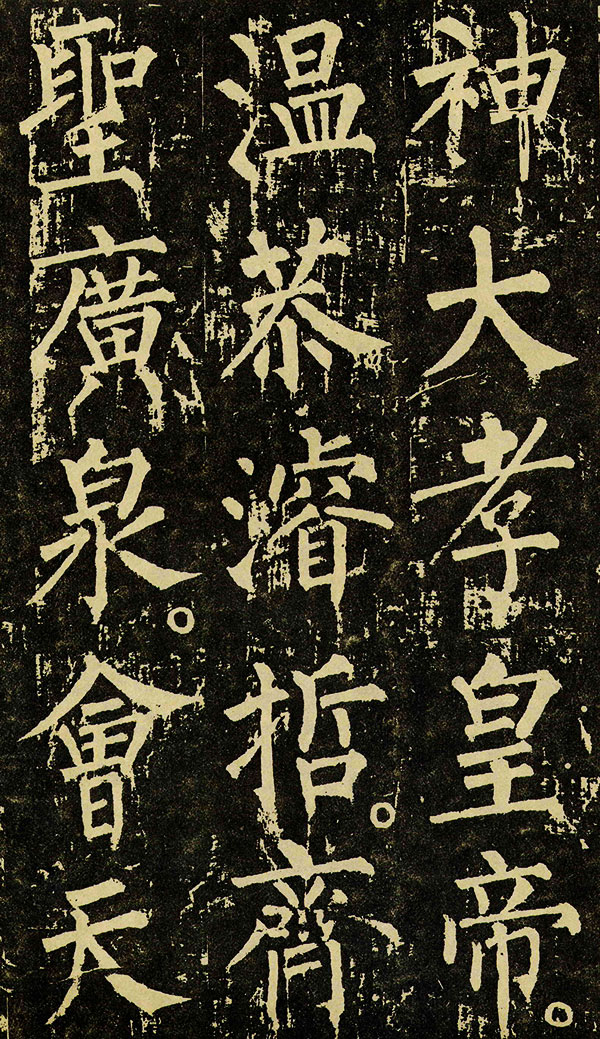 神大孝皇帝。
温恭濬哲。齊
聖廣泉。會天